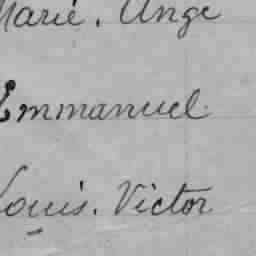 Marie. Ange
Emmanuel
Louis. Victor